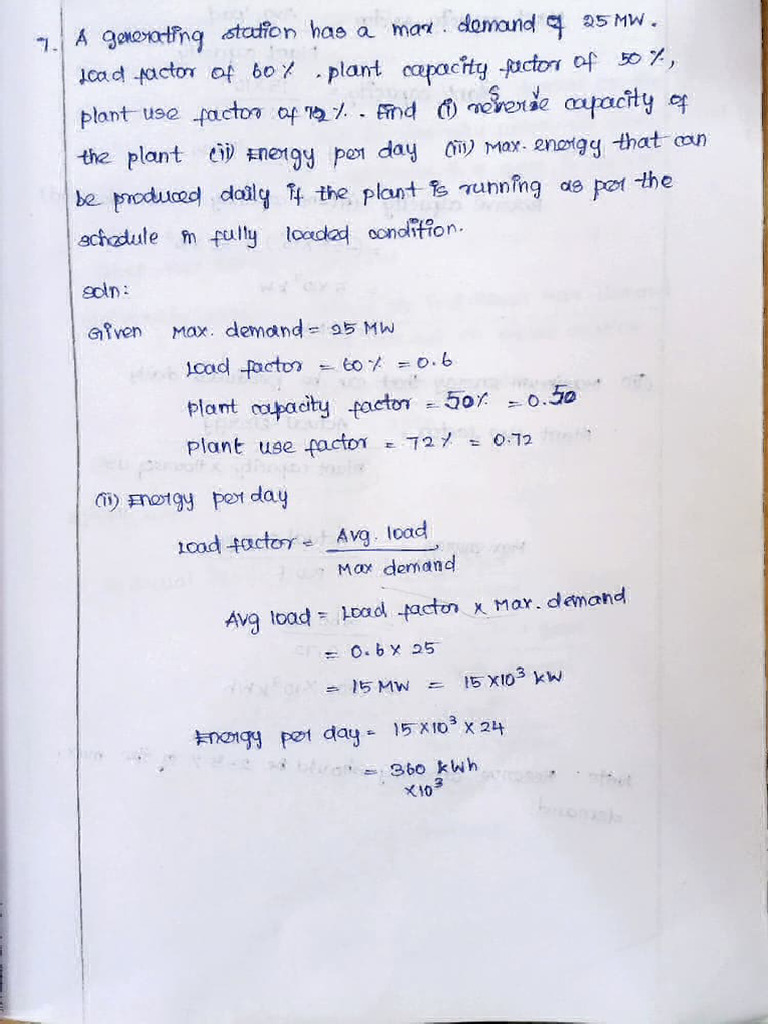 7. A generating station has a max. demand of 25 MW.
Load factor of 60%. plant capacity factor of 50%,
plant use factor of 72%. Find (i) reserve capacity of
the plant (ii) Energy per day (iii) Max. energy that can
be produced daily if the plant is running as per the
schedule in fully loaded condition.
soln:
Given Max. demand = 25 MW
Load factor = 60% = 0.6
plant capacity factor = 50% = 0.50
Plant use factor = 72% = 0.72
(ii) Energy per day
Load factor = Avg. load
Max demand
Avg load = Load factor x Max. demand
= 0.6 x 25
= 15 MW = 15 x10³ kW
Energy per day = 15 x10³ x 24
= 360 kWh
x10³